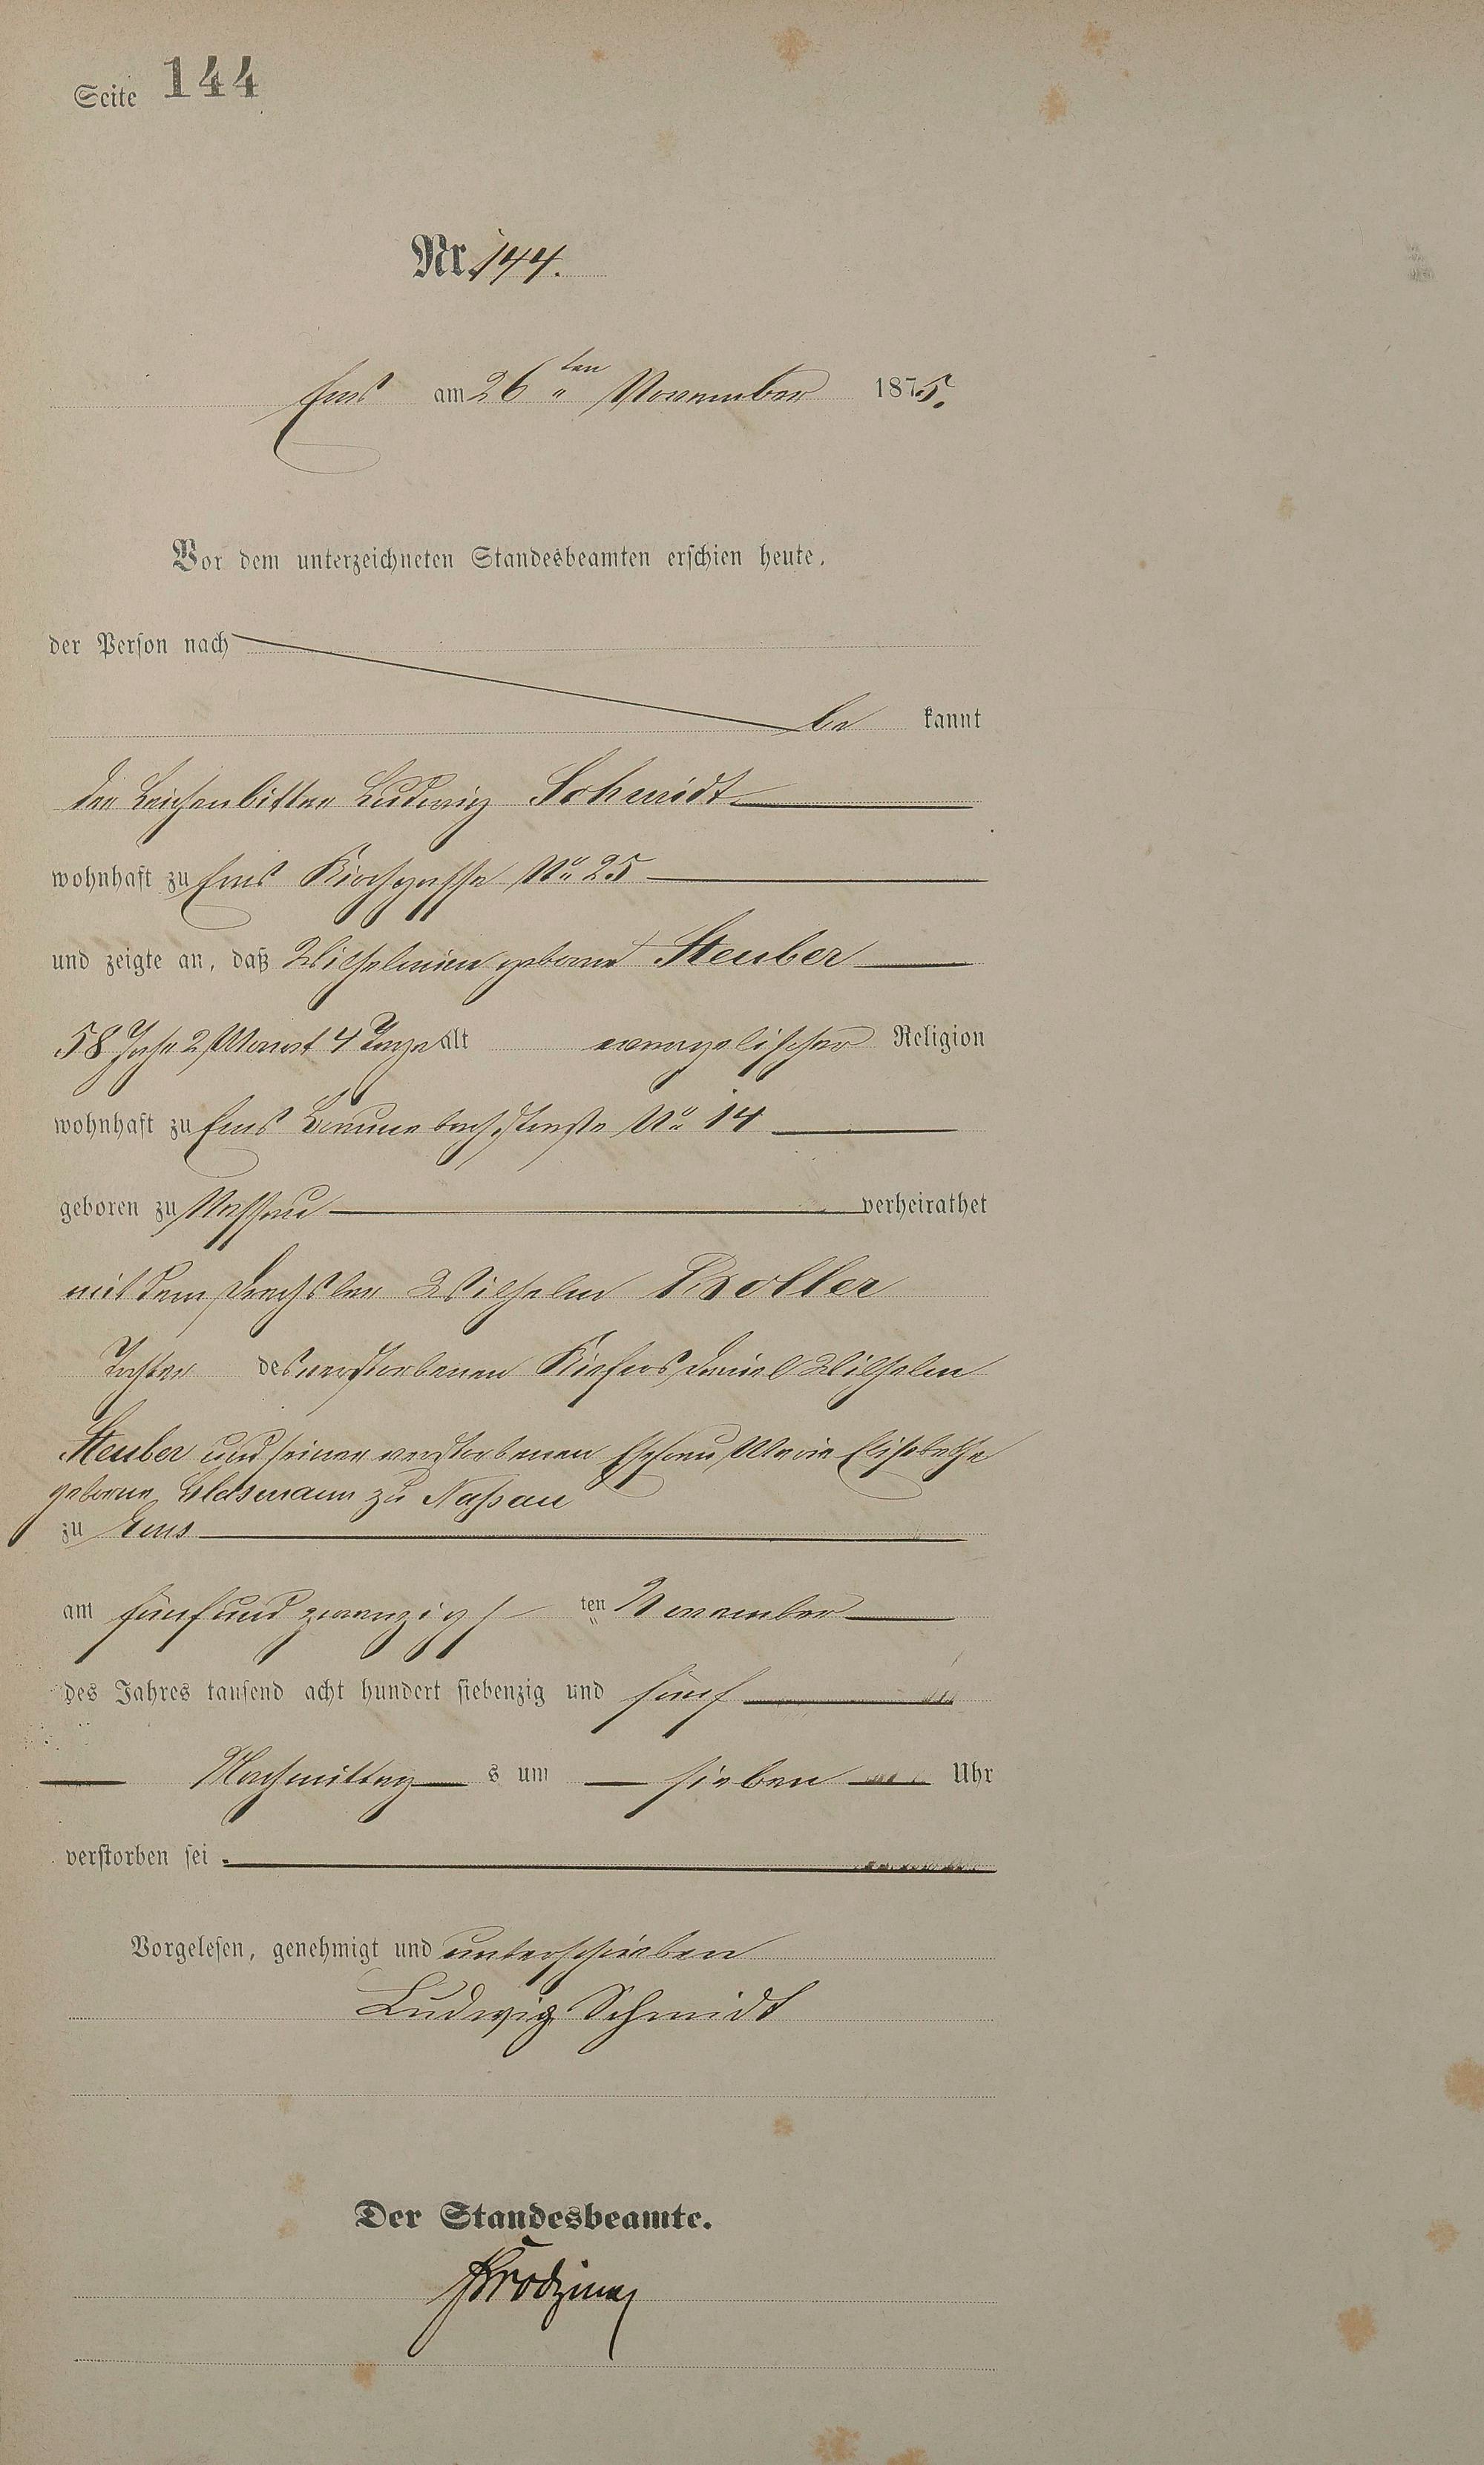 Seite 144
Nr. 144.
Ems am 26ten November 1875.
Vor dem unterzeichneten Standesbeamten erschien heute,
der Person nach
be kannt
der Leichenbitter Ludwig Schmidt
wohnhaft zu Ems Kirchgasse No 25
und zeigte an, daß Wilhelmine geborne Steuber
58 Jahr 2 Monat 4 Tage alt evangelischer Religion
wohnhaft zu Ems straße No 14
geboren zu Nassau verheirathet
mit dem Drechsler Wilhelm
Tochter des verstorbenen Küfers Daniel Wilhelm
Steuber und seiner verstorbenen Ehefrau Marie Elisabethe
geborne Glasmann zu Naßau
zu Ems
am fünf und zwanzigsten November
des Jahres tausend acht hundert siebenzig und fünf
Nachmittag s um sieben Uhr
verstorben sei.
Vorgelesen, genehmigt und unterschrieben
Ludwig Schmidt
Der Standesbeamte.